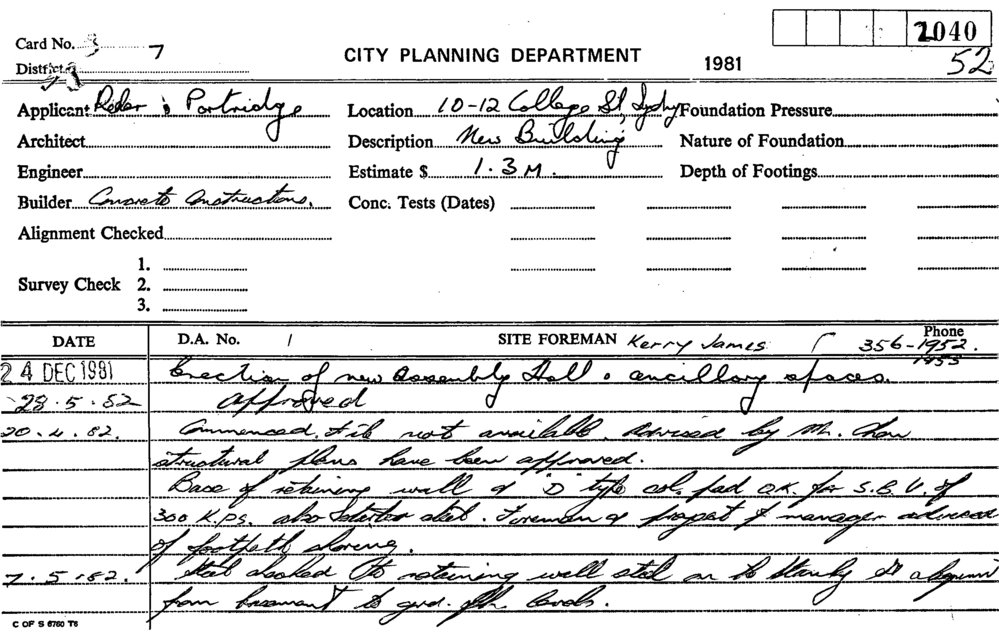 2040
Card No. 3 7
CITY PLANNING DEPARTMENT
1981
52
District
Applicant Reder & Partridge
Location 10-12 College St, Sydny
Foundation Pressure
Architect
Description New Building
Nature of Foundation
Engineer
Estimate $ 1.3 M.
Depth of Footings
Builder Concrete Constructions.
Conc. Tests (Dates)
Alignment Checked
1.
Survey Check 2.
3.
DATE D.A. No. / SITE FOREMAN Kerry James Phone 356-1952.
1953
24 DEC 1981 Erection of new Assembly Hall & ancillary spaces.
28.5.82 Approved
20.4.82. Commenced. File not available. Advised by Mr. Chan
structural plans have been approved.
Base of retaining wall & "D" type col. pad O.K. for S.B.V. of
300 K.Ps. also steel. Foreman & project manager advised
of footpath shoring.
7.5.82. Steel checked to retaining wall steel on to Stanley St
from basement to grd. levels.
C OF S 6760 T6